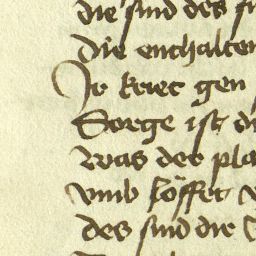 die sind des
Die enthalten
Ir krier gen
Sorge ist
was der pla
vmb
des sind die